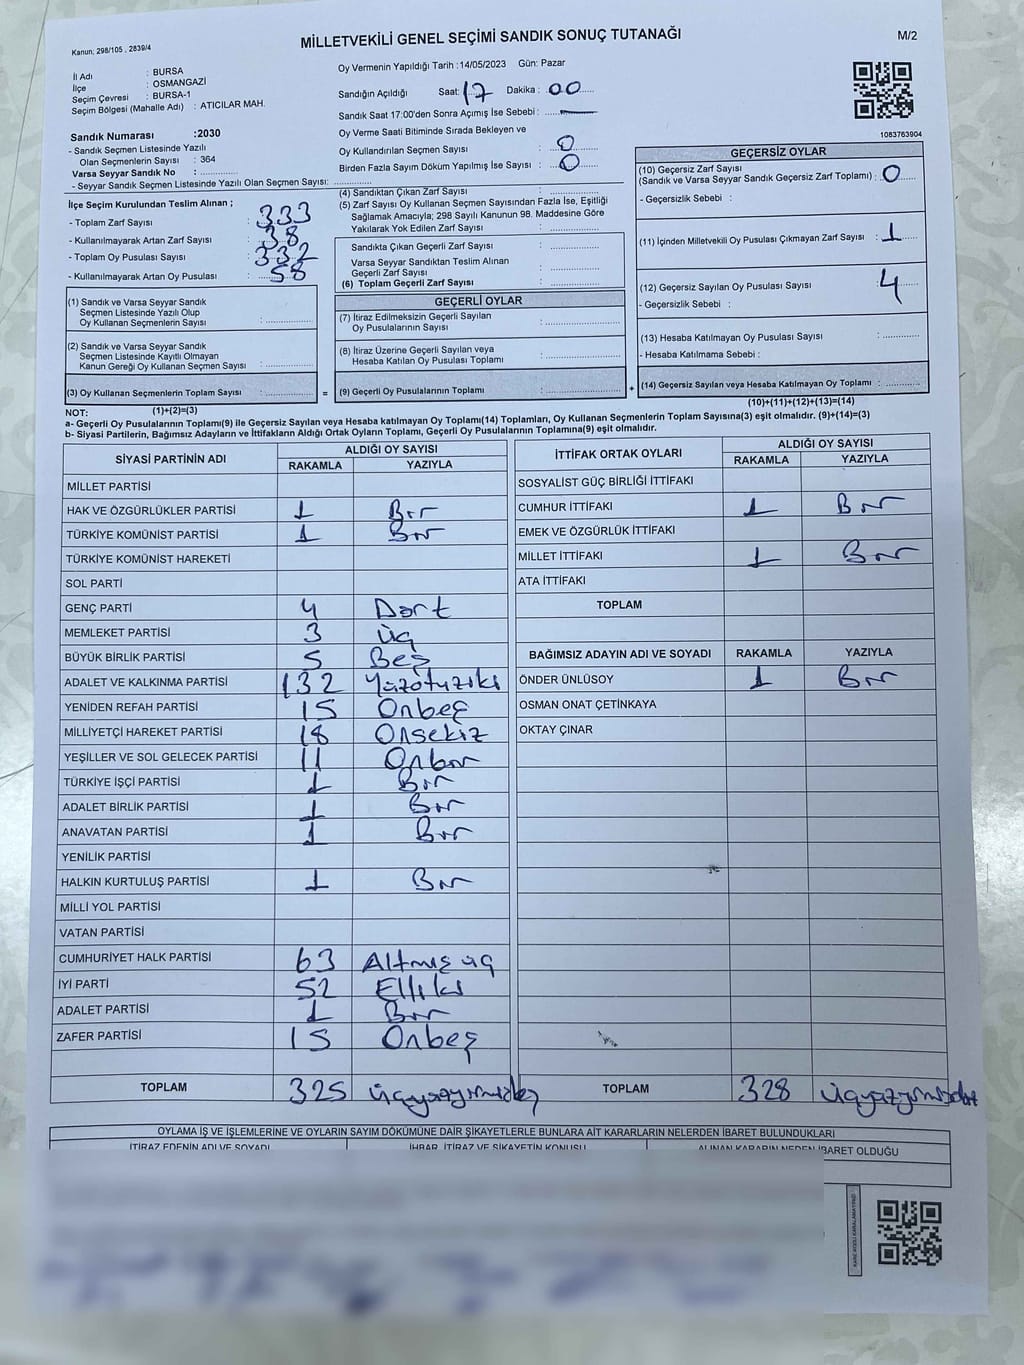 MİLLETVEKİLİ GENEL SEÇİMİ SANDIK SONUÇ TUTANAĞI
M/2
Kanun; 298/105 , 2839/4
İl Adı : BURSA
İlçe : OSMANGAZİ
Seçim Çevresi : BURSA-1
Seçim Bölgesi (Mahalle Adı) : ATICILAR MAH.
Oy Vermenin Yapıldığı Tarih :14/05/2023 Gün: Pazar
Sandığın Açıldığı Saat: 17 Dakika : 00
Sandık Saat 17:00'den Sonra Açımış İse Sebebi :
Oy Verme Saati Bitiminde Sırada Bekleyen ve
Oy Kullandırılan Seçmen Sayısı : 0
Birden Fazla Sayım Döküm Yapılmış İse Sayısı : 0
1083763904
Sandık Numarası :2030
- Sandık Seçmen Listesinde Yazılı
Olan Seçmenlerin Sayısı : 364
Varsa Seyyar Sandık No :
- Seyyar Sandık Seçmen Listesinde Yazılı Olan Seçmen Sayısı:
İlçe Seçim Kurulundan Teslim Alınan ;
- Toplam Zarf Sayısı : 333
- Kullanılmayarak Artan Zarf Sayısı : 38
- Toplam Oy Pusulası Sayısı : 332
- Kullanılmayarak Artan Oy Pusulası : 58
(1) Sandık ve Varsa Seyyar Sandık
Seçmen Listesinde Yazılı Olup
Oy Kullanan Seçmenlerin Sayısı :
(2) Sandık ve Varsa Seyyar Sandık
Seçmen Listesinde Kayıtlı Olmayan
Kanun Gereği Oy Kullanan Seçmen Sayısı :
(3) Oy Kullanan Seçmenlerin Toplam Sayısı :
(1)+(2)=(3)
(4) Sandıktan Çıkan Zarf Sayısı :
(5) Zarf Sayısı Oy Kullanan Seçmen Sayısından Fazla İse, Eşitliği
Sağlamak Amacıyla; 298 Sayılı Kanunun 98. Maddesine Göre
Yakılarak Yok Edilen Zarf Sayısı :
Sandıkta Çıkan Geçerli Zarf Sayısı :
Varsa Seyyar Sandıktan Teslim Alınan
Geçerli Zarf Sayısı :
(6) Toplam Geçerli Zarf Sayısı :
GEÇERLİ OYLAR
(7) İtiraz Edilmeksizin Geçerli Sayılan
Oy Pusulalarının Sayısı :
(8) İtiraz Üzerine Geçerli Sayılan veya
Hesaba Katılan Oy Pusulası Toplamı :
= (9) Geçerli Oy Pusulalarının Toplamı : +
GEÇERSİZ OYLAR
(10) Geçersiz Zarf Sayısı
(Sandık ve Varsa Seyyar Sandık Geçersiz Zarf Toplamı) : 0
- Geçersizlik Sebebi :
(11) İçinden Milletvekili Oy Pusulası Çıkmayan Zarf Sayısı : 1
(12) Geçersiz Sayılan Oy Pusulası Sayısı : 4
- Geçersizlik Sebebi :
(13) Hesaba Katılmayan Oy Pusulası Sayısı :
- Hesaba Katılmama Sebebi :
(14) Geçersiz Sayılan veya Hesaba Katılmayan Oy Toplamı :
(10)+(11)+(12)+(13)=(14)
NOT:
a- Geçerli Oy Pusulalarının Toplamı(9) ile Geçersiz Sayılan veya Hesaba katılmayan Oy Toplamı(14) Toplamları, Oy Kullanan Seçmenlerin Toplam Sayısına(3) eşit olmalıdır. (9)+(14)=(3)
b- Siyasi Partilerin, Bağımsız Adayların ve İttifakların Aldığı Ortak Oyların Toplamı, Geçerli Oy Pusulalarının Toplamına(9) eşit olmalıdır.
SİYASİ PARTİNİN ADI ALDIĞI OY SAYISI
RAKAMLA YAZIYLA
MİLLET PARTİSİ
HAK VE ÖZGÜRLÜKLER PARTİSİ 1 Bir
TÜRKİYE KOMÜNİST PARTİSİ 1 Bir
TÜRKİYE KOMÜNİST HAREKETİ
SOL PARTİ
GENÇ PARTİ 4 Dört
MEMLEKET PARTİSİ 3 üç
BÜYÜK BİRLİK PARTİSİ 5 Beş
ADALET VE KALKINMA PARTİSİ 132 Yüzotuziki
YENİDEN REFAH PARTİSİ 15 Onbeş
MİLLİYETÇİ HAREKET PARTİSİ 18 Onsekiz
YEŞİLLER VE SOL GELECEK PARTİSİ 11 Onbir
TÜRKİYE İŞÇİ PARTİSİ 1 Bir
ADALET BİRLİK PARTİSİ 1 Bir
ANAVATAN PARTİSİ 1 Bir
YENİLİK PARTİSİ
HALKIN KURTULUŞ PARTİSİ 1 Bir
MİLLİ YOL PARTİSİ
VATAN PARTİSİ
CUMHURİYET HALK PARTİSİ 63 Altmış üç
İYİ PARTİ 52 Elliki
ADALET PARTİSİ 1 Bir
ZAFER PARTİSİ 15 Onbeş
TOPLAM 325
İTTİFAK ORTAK OYLARI ALDIĞI OY SAYISI
RAKAMLA YAZIYLA
SOSYALİST GÜÇ BİRLİĞİ İTTİFAKI
CUMHUR İTTİFAKI 1 Bir
EMEK VE ÖZGÜRLÜK İTTİFAKI
MİLLET İTTİFAKI 1 Bir
ATA İTTİFAKI
TOPLAM
BAĞIMSIZ ADAYIN ADI VE SOYADI RAKAMLA YAZIYLA
ÖNDER ÜNLÜSOY 1 Bir
OSMAN ONAT ÇETİNKAYA
OKTAY ÇINAR
TOPLAM 328
OYLAMA İŞ VE İŞLEMLERİNE VE OYLARIN SAYIM DÖKÜMÜNE DAİR ŞİKAYETLERLE BUNLARA AİT KARARLARIN NELERDEN İBARET BULUNDUKLARI
İTİRAZ EDENİN ADI VE SOYADI İHBAR, İTİRAZ VE ŞİKAYETİN KONUSU ALINAN KARARIN NEDEN İBARET OLDUĞU